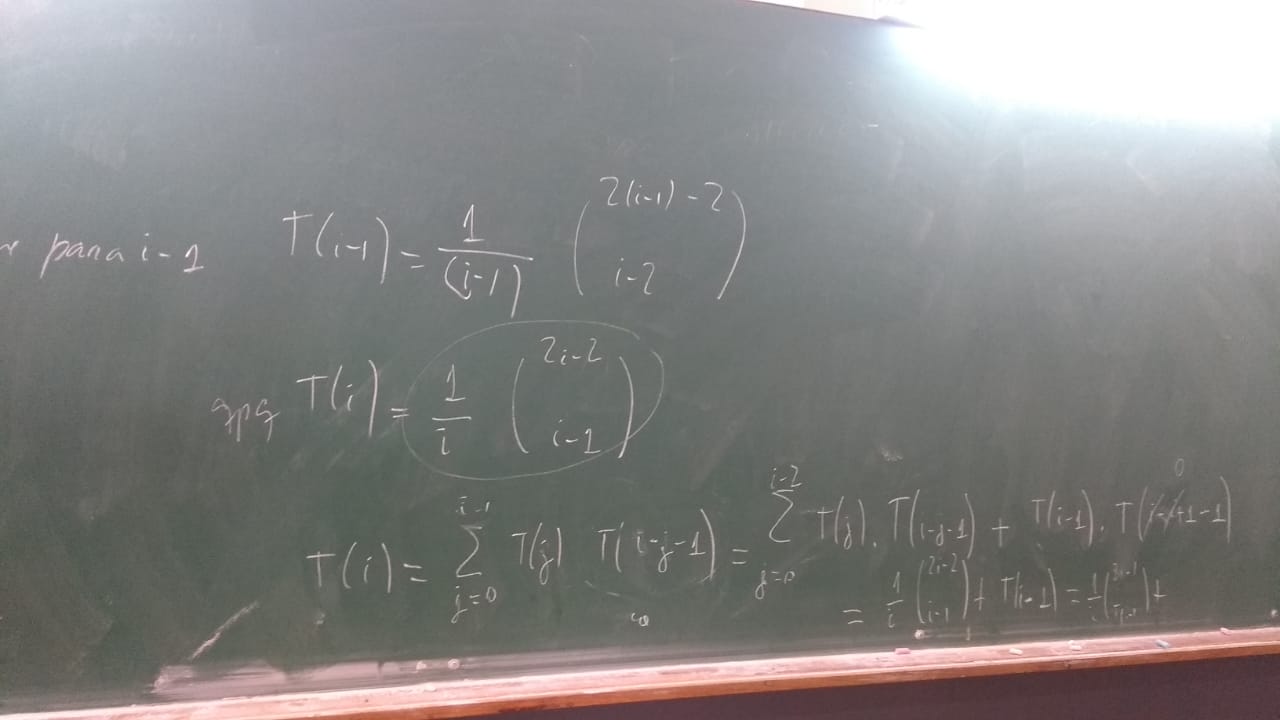 para i-1 T(i-1) = 1/(i-1) (2(i-1)-2 / i-2)
qpq T(i) = 1/i (2i-2 / i-1)
T(i) = ∑_{j=0}^{i-1} T(j) T(i-j-1) = ∑_{j=0}^{i-2} T(j). T(i-j-1) + T(i-1). T(i-i+1-1) 0
= 1/i (2i-2 / i-1) + T(i-1) =